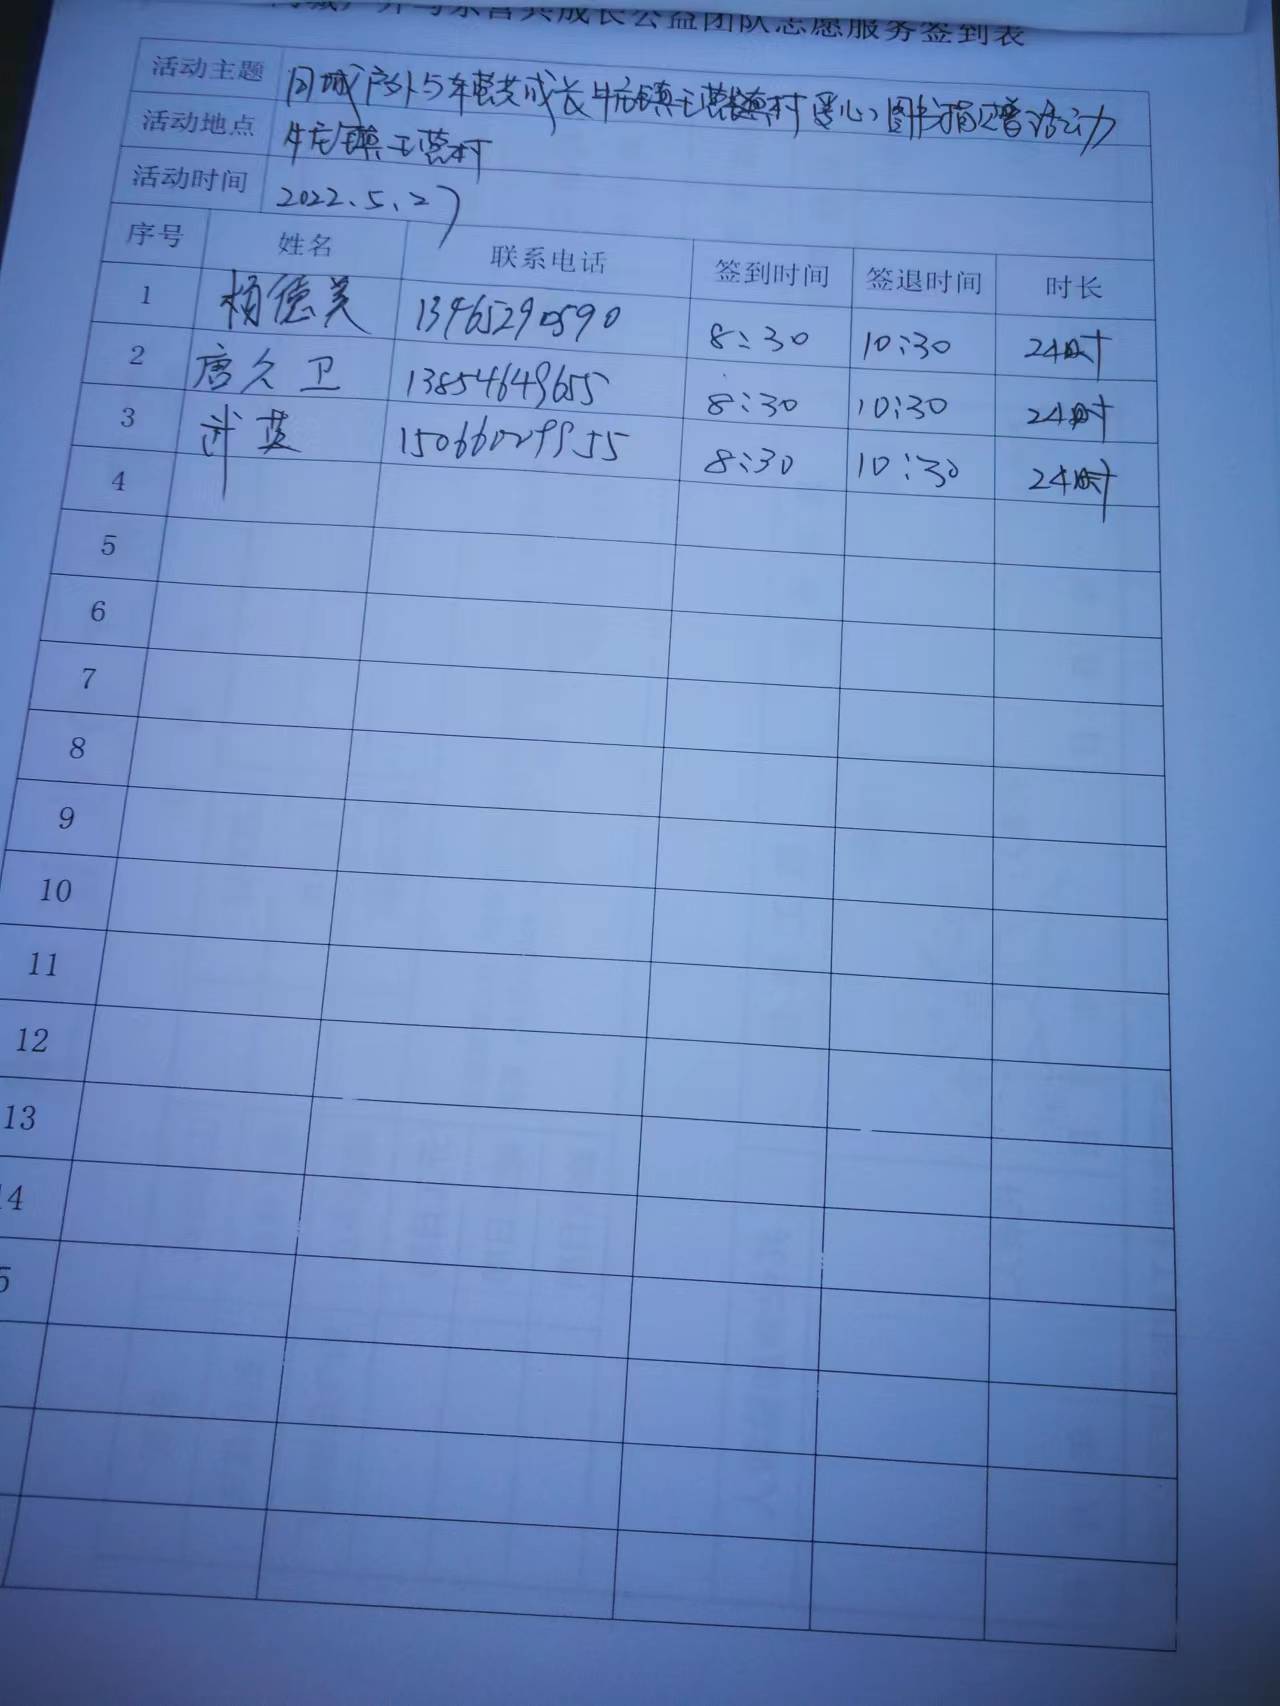 同城户外与东营共成长公益团队志愿服务签到表
活动主题 同城户外与东营共成长牛庄镇王营村爱心图书捐赠活动
活动地点 牛庄镇王营村
活动时间 2022.5.27
序号 姓名 联系电话 签到时间 签退时间 时长
1 杨德美 13465290590 8:30 10:30 2小时
2 唐久卫 13854649655 8:30 10:30 2小时
3 8:30 10:30 2小时
4
5
6
7
8
9
10
11
12
13
14
5